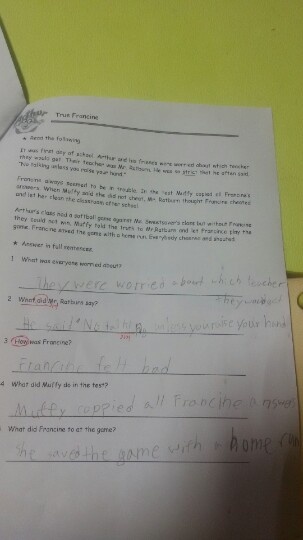 True Francine
★ Read the following
It was first day of school. Arthur and his friends were worried about which teacher
they would get. Their teacher was Mr. Ratburn. He was so strict that he often said,
"No talking unless you raise your hand."
Francine always seemed to be in trouble. In the test Muffy copied all Francine's
answers. When Muffy said she did not cheat, Mr. Ratburn thought Francine cheated
and let her clean the classroom after school.
Arthur's class had a softball game against Mr. Sweetwater's class but without Francine
they could not win. Muffy told the truth to Mr.Ratburn and let Francince play the
game. Francine saved the game with a home run. Everybody cheered and shouted.
★ Answer in full sentences.
1 What was everyone worried about?
They were worried about which teacher
they would get
2 What did Mr. Ratburn say?
He said "No talking unless you raise your hand
3 How was Francine?
Francine felt bad
4 What did Muffy do in the test?
Muffy coppied all Francine answers
What did Francine to at the game?
She saved the game with a home run